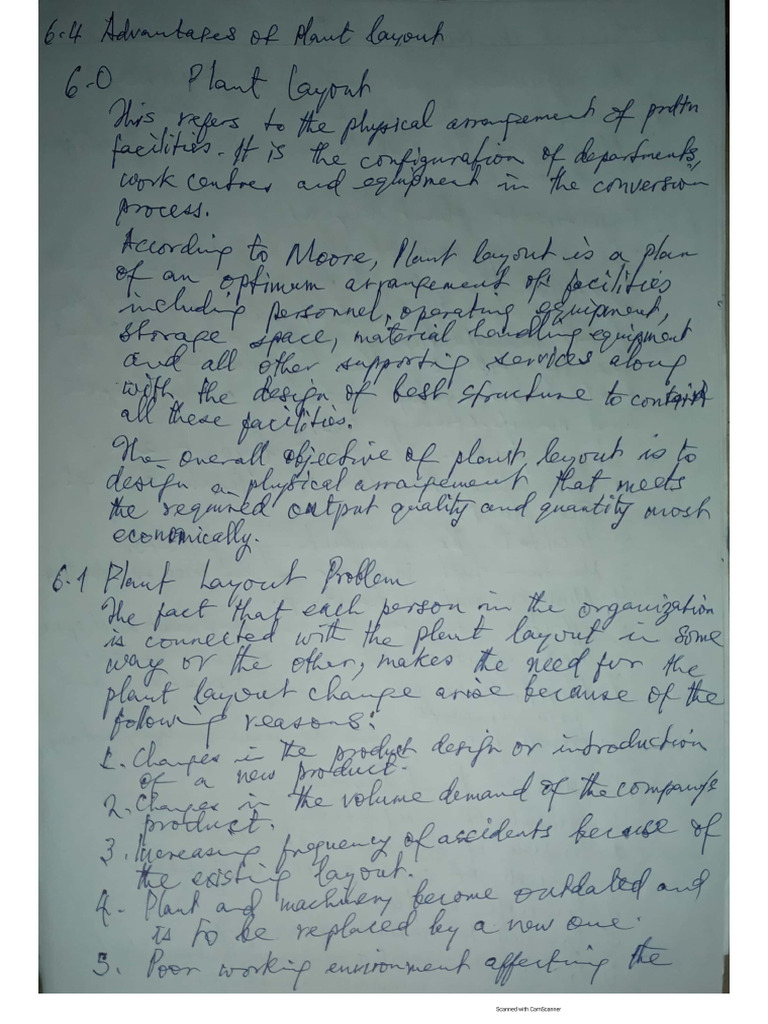 6.4 Advantages of Plant Layout
6.0 Plant Layout
This refers to the physical arrangement of prdtn
facilities. It is the configuration of departments,
work centres and equipment in the conversion
process.
According to Moore, Plant layout is a plan
of an optimum arrangement of facilities
including personnel, operating equipment,
storage space, material handling equipment
and all other supporting services along
with the design of best structure to contain
all these facilities.
The overall objective of plant layout is to
design a physical arrangement that meets
the required output quality and quantity most
economically.
6.1 Plant Layout Problem
The fact that each person in the organization
is connected with the plant layout in some
way or the other, makes the need for the
plant layout change arise because of the
following reasons:
1. Changes in the product design or introduction
of a new product.
2. Changes in the volume demand of the company's
product.
3. Increasing frequency of accidents because of
the existing layout.
4. Plant and machinery become outdated and
is to be replaced by a new one.
5. Poor working environment affecting the
Scanned with CamScanner